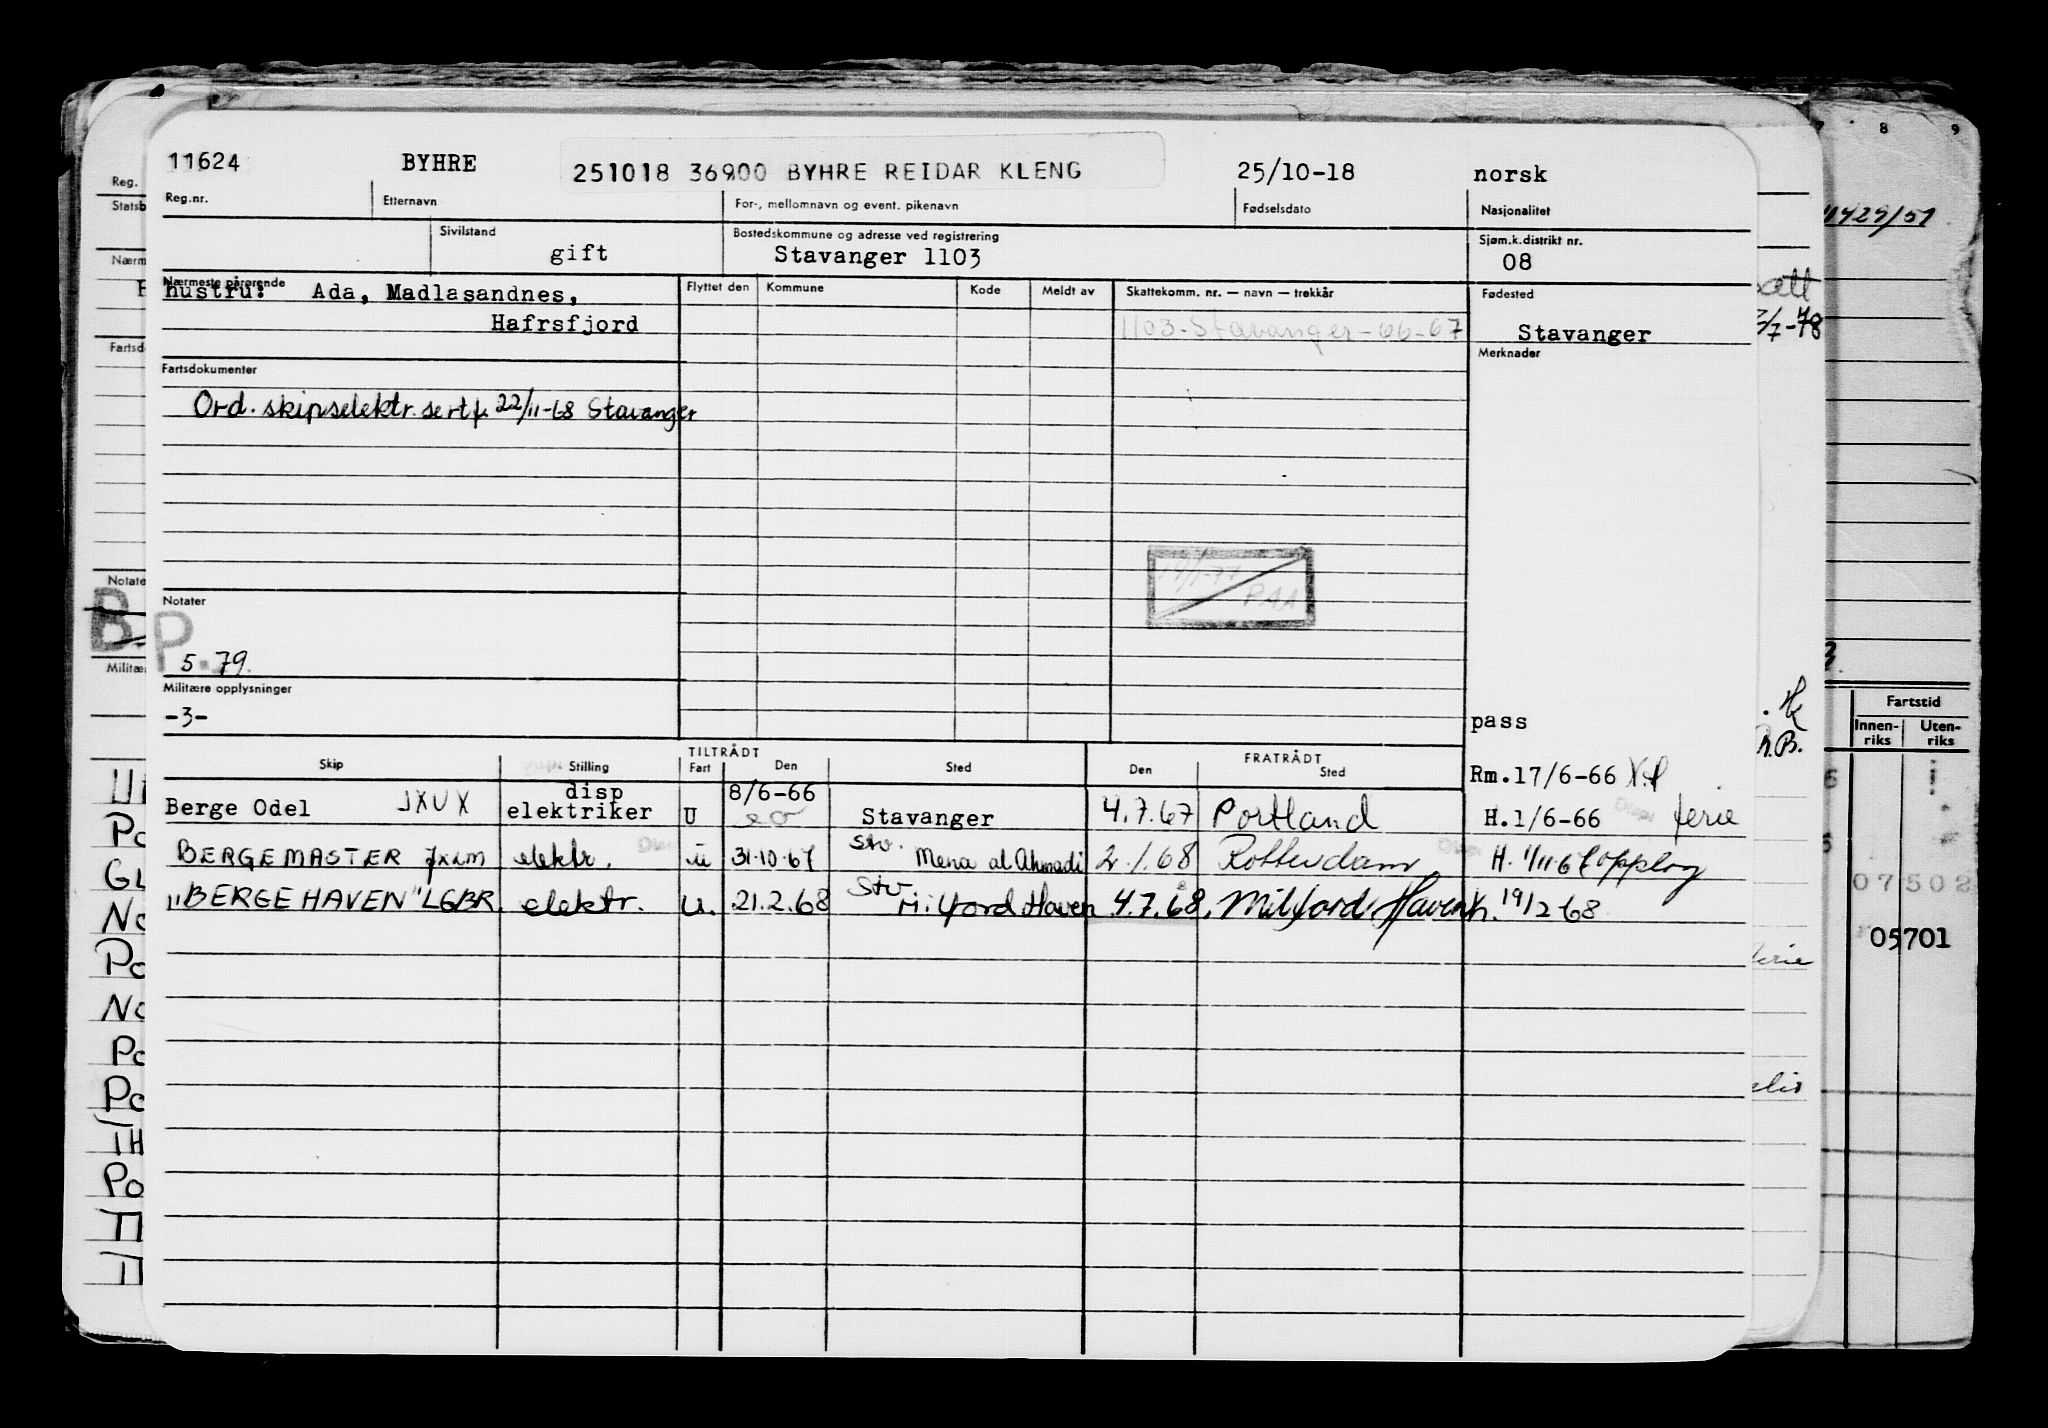 11624 BYHRE 251018 36900 BYHRE REIDAR KLENG 25/10-18 norsk
Reg.nr. Etternavn For-, mellomnavn og event. pikenavn Fødselsdato Nasjonalitet
Sivilstand Bostedskommune og adresse ved registrering Sjøm.k.distrikt nr.
gift Stavanger 1103 08
Nærmeste pårørende Flyttet den Kommune Kode Meldt av Skattekomm. nr. — navn — trekkår Fødested
hustru: Ada, Madlasandnes,
Hafrsfjord 1103-Stavanger-66-67 Stavanger
Merknader
Fartsdokumenter
Ord. skipselektr. sertf. 22/11-68 Stavanger
Notater
B.P.
5.79.
Militære opplysninger
-3- pass
TILTRÅDT FRATRÅDT
Skip Stilling Fart Den Sted Den Sted
Rm.17/6-66
Berge Odel JXUX disp elektriker U 8/6-66 Stavanger 4.7.67 Portland H.1/6-66 ferie
BERGEMASTER elektr. u 31.10.67 Stv. Mena al Ahmadi 2.1.68 Rotterdam H. 1/11-67 opplag
"BERGE HAVEN" LGBR. elektr. u. 21.2.68 Stv. Milford Haven 4.7.68. Milford Haven h. 19/2-68
8 9
Reg.
Fartstid
Innen-riks Uten-riks
07502
05701